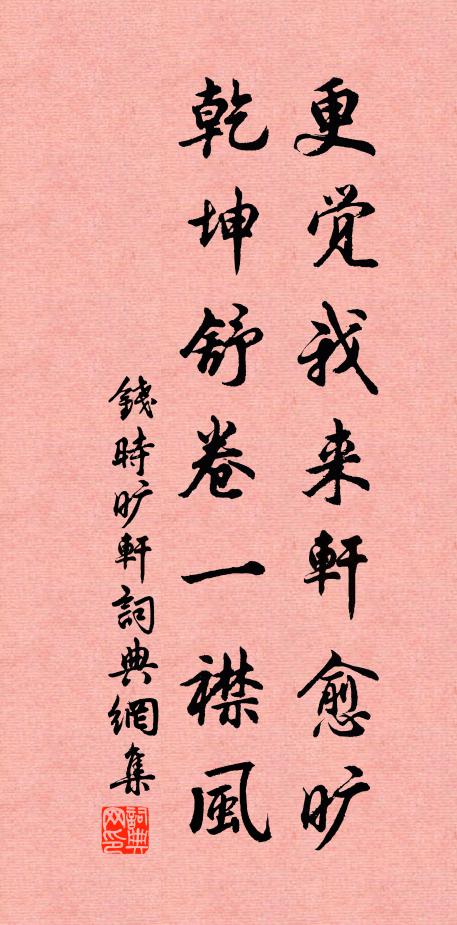 更覚我来軒愈旷
乾坤舒卷一襟風
錢時旷軒詞典網集
詞典网印